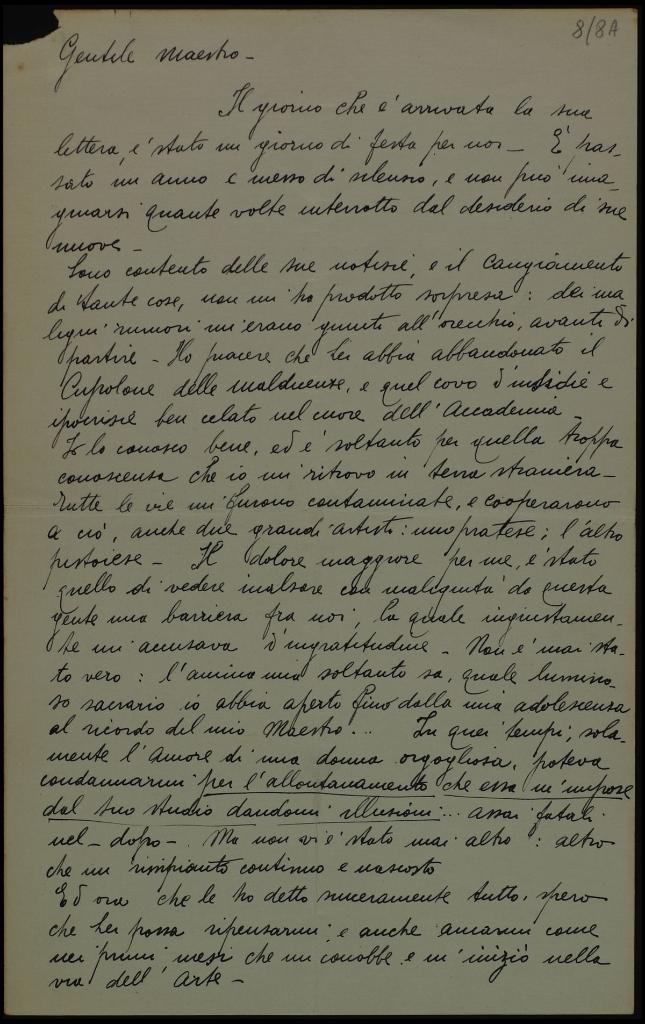 8/8A
Gentile Maestro –
Il giorno che è arrivata la sua
lettera, è stato un giorno di festa per noi – È pas-
sato un anno e messo di silensio, e non può ima-
ginarsi quante volte interrotto dal desiderio di sue
nuove –
Sono contento delle sue notisie, e il Cangiamento
di tante cose, non mi ha prodotto sorpresa: dei ma
ligni rumori mi erano giunti all'orecchio, avanti di
partire – Ho piacere che Lei abbia abbandonato il
Cupolone delle maldicense, e quel covo d'insidie e
ipocrisie ben celato nel cuore dell'Accademia –
Io lo conosco bene, ed è soltanto per quella troppa
conoscensa che io mi ritrovo in terra straniera –
Tutte le vie mi furono contaminate, e cooperarono
a ciò, anche due grandi artisti: uno pratese; l'altro
pistoiese – Il dolore maggiore per me, è stato
quello di vedere inalsare con malignità da questa
gente una barriera fra noi, la quale ingiustamen-
te mi accusava d'ingratitudine – Non è mai sta-
to vero: l'anima mia soltanto sa, quale lumino-
so sacrario io abbia aperto fino dalla mia adolescensa
al ricordo del mio Maestro... In quei tempi, sola-
mente l'Amore di una donna orgogliosa, poteva
condannarmi per l'allontanamento che essa m'impose
dal suo studio dandomi illusioni... assai fatali
nel – dopo –. Ma non vi è stato mai altro: altro
che un rimpianto continuo e nascosto
Ed ora che le ho detto sinceramente tutto, spero
che Lei possa ripensarmi, e anche amarmi come
nei primi mesi che mi conobbe e m'iniziò nella
via dell'Arte –